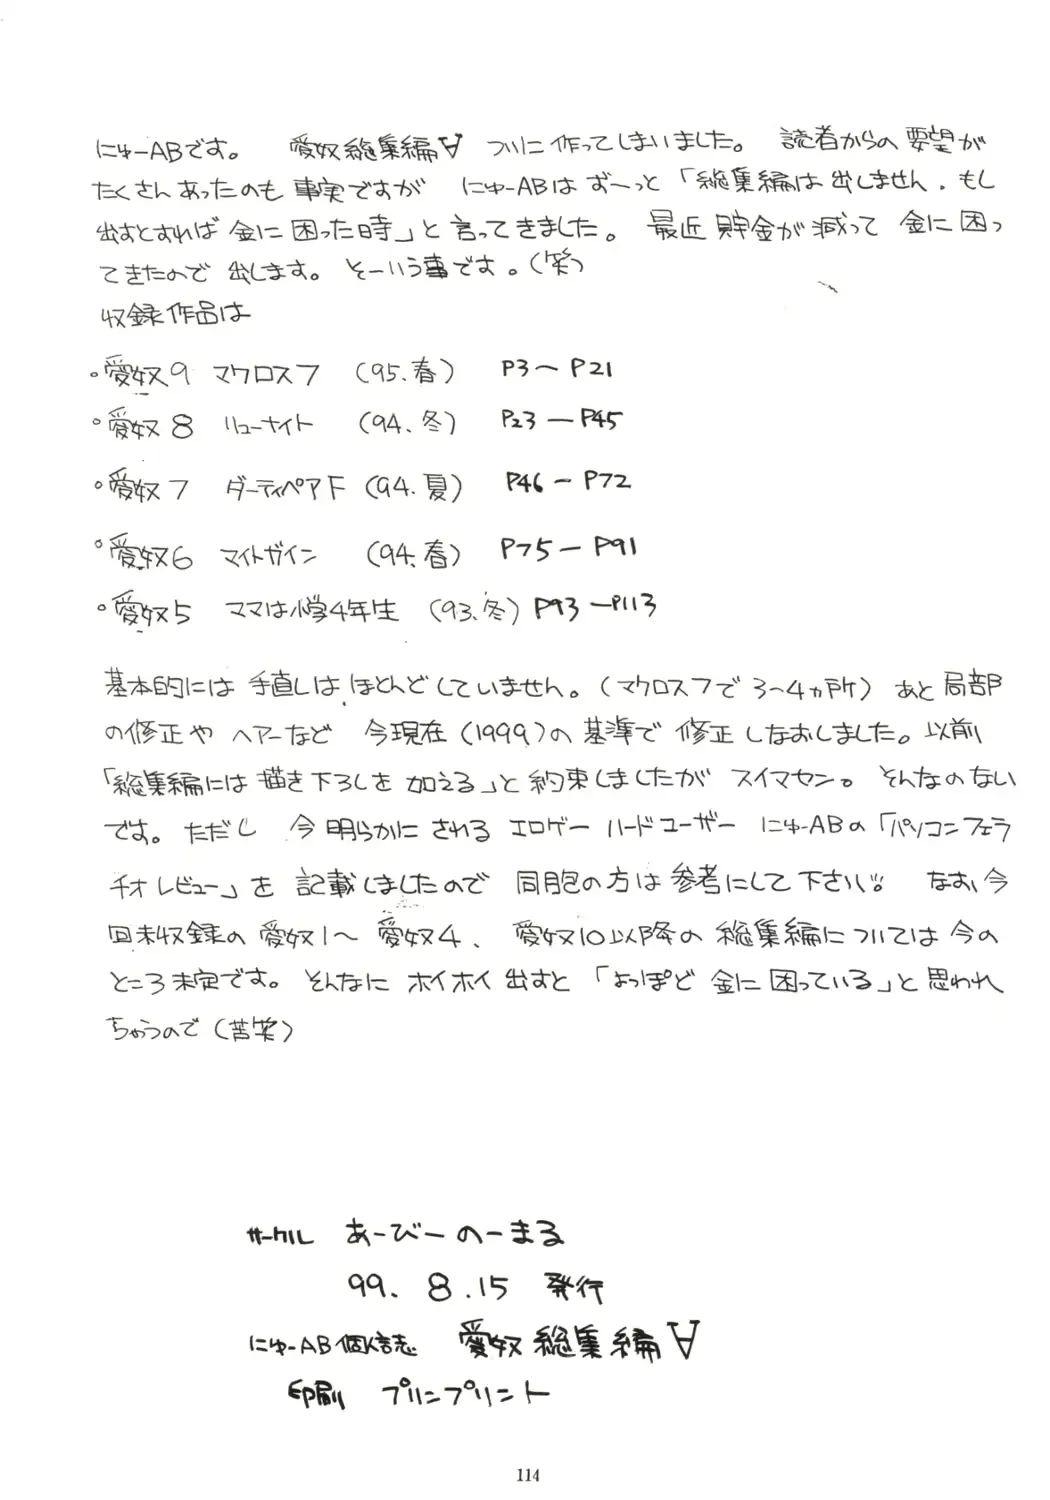 にゅーABです。 愛奴総集編∀ ついに作ってしまいました。 読者からの要望が
たくさんあったのも事実ですが にゅーABはず〜っと「総集編は出しません。もし
出すとすれば金に困った時」と言ってきました。 最近貯金が減って金に困っ
てきたので出します。そーいう事です。(笑)
収録作品は
・愛奴9 マクロス7 (95.春) P3〜P21
・愛奴8 リューナイト (94.冬) P23ーP45
・愛奴7 ダーティペアF (94.夏) P46ーP72
・愛奴6 マイトガイン (94.春) P75ーP91
・愛奴5 ママは小学4年生 (93.冬) P93ーP113
基本的には手直しはほとんどしていません。(マクロス7で3〜4ヵ所) あと局部
の修正やヘアーなど 今現在(1999)の基準で修正しなおしました。以前
「総集編には描き下ろしを加える」と約束しましたがスイマセン。そんなのない
です。ただし 今明らかにされるエロゲーハードユーザーにゅーABの「パソコンフェラ
チオレビュー」を記載しましたので同胞の方は参考にして下さい。 なお、今
回未収録の愛奴1〜愛奴4、愛奴10以降の総集編については今の
ところ未定です。そんなにホイホイ出すと「よっぽど金に困っている」と思われ
ちゃうので(苦笑)
サークル あーびーのーまる
99. 8.15 発行
にゅーAB個人誌 愛奴総集編∀
印刷 プリンプリント
114